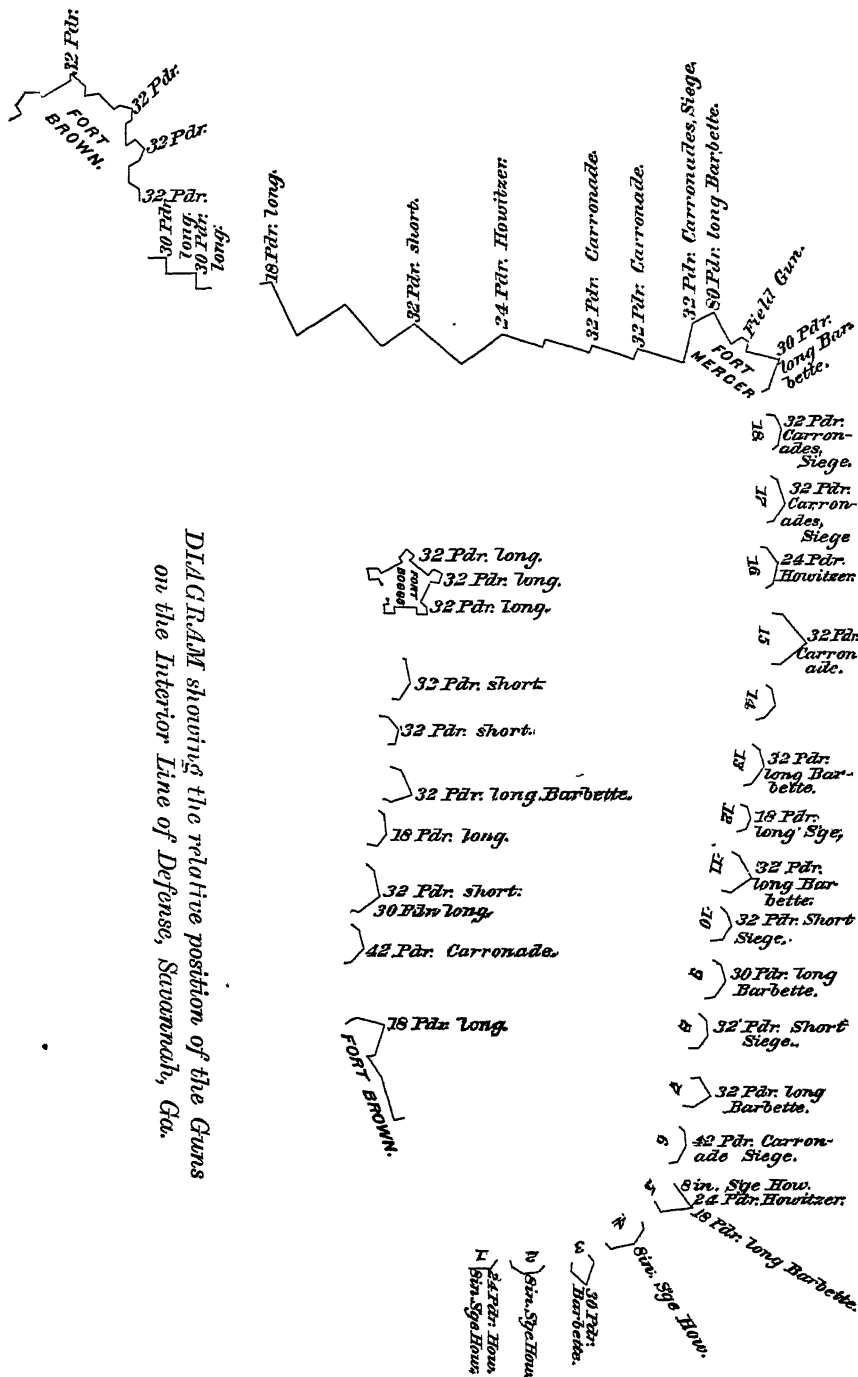 32 Pdr.
FORT
BROWN.
32 Pdr.
32 Pdr.
32 Pdr.
30 Pdr.
long.
30 Pdr.
long.
18 Pdr. long.
32 Pdr. short.
24 Pdr. Howitzer.
32 Pdr. Carronade.
32 Pdr. Carronade.
32 Pdr. Carronades, Siege.
80 Pdr. long Barbette.
FORT
MERCER
Field Gun.
30 Pdr.
long Bar
bette.
18.
32 Pdr.
Carron-
ades,
Siege.
17
32 Pdr.
Carron-
ades,
Siege
16
24 Pdr.
Howitzer.
15
32 Pdr.
Carron
ade.
14
13
32 Pdr.
long Bar-
bette.
12
18 Pdr.
long Sge,
11
32 Pdr.
long Bar-
bette.
10
32 Pdr. Short
Siege.
9
30 Pdr. long
Barbette.
8
32 Pdr. Short
Siege.
7
32 Pdr. long
Barbette.
6
42 Pdr. Carron-
ade Siege.
5
8in. Sge How.
24 Pdr. Howitzer.
18 Pdr. long Barbette.
4
8in. Sge How.
3
30 Pdr.
Barbette.
2
8in. Sge How.
1
24 Pdr. How.
8in. Sge How.
32 Pdr. long.
FORT
BOGGS
32 Pdr. long.
32 Pdr. long.
32 Pdr. short
32 Pdr. short.
32 Pdr. long Barbette.
18 Pdr. long.
32 Pdr. short.
30 Pdr long.
42 Pdr. Carronade.
18 Pdr. long.
FORT BROWN.
DIAGRAM showing the relative position of the Guns
on the Interior Line of Defense, Savannah, Ga.